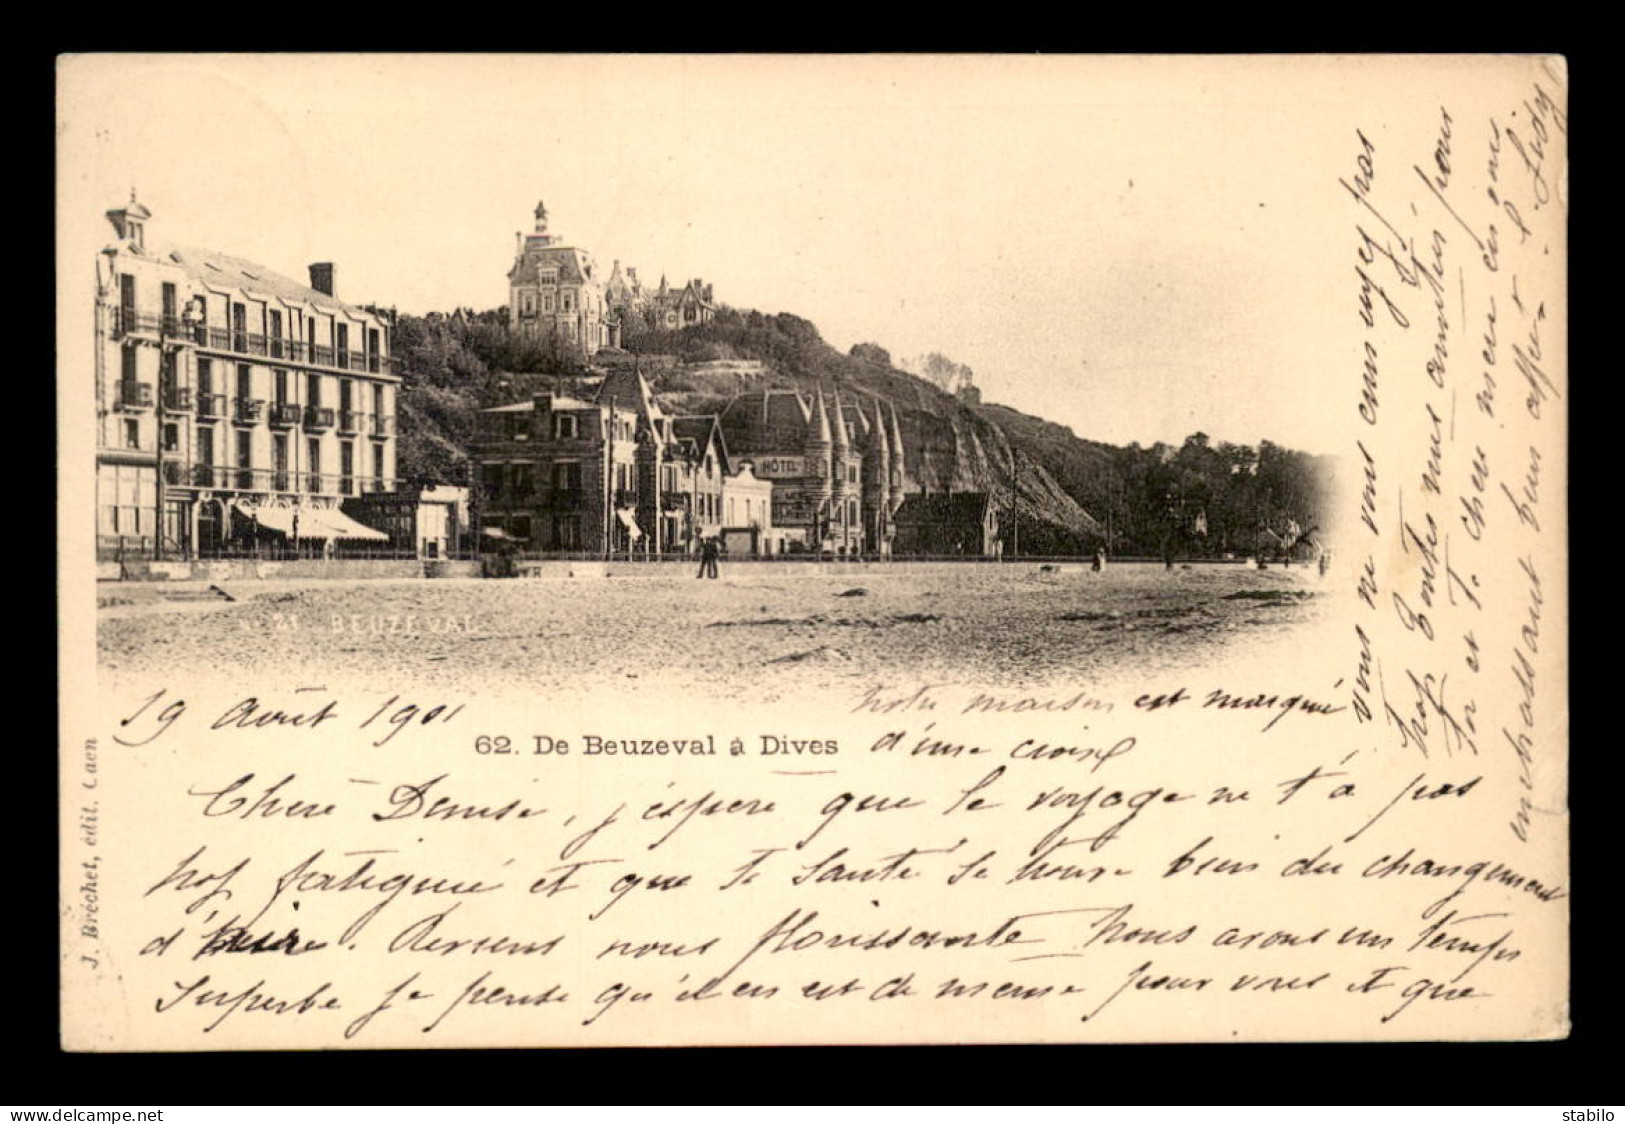 HÔTEL
N° 21 BEUZEVAL
19 Août 1901
notre maison est marquée
d'une croix
62. De Beuzeval à Dives
J. Bréchet, édit. Caen
Chère Denise, j'espère que le voyage ne t'a pas
trop fatiguée et que ta santé se trouve bien du changement
d'air. Reviens nous florissante Nous avons un temps
superbe je pense qu'il en est de meme pour vous et que
vous ne vous ennuyez pas
trop Toutes nos amitiés pour
toi et Ta chere mere en vous
embrassant bien affect
delcampe.net
stabilo